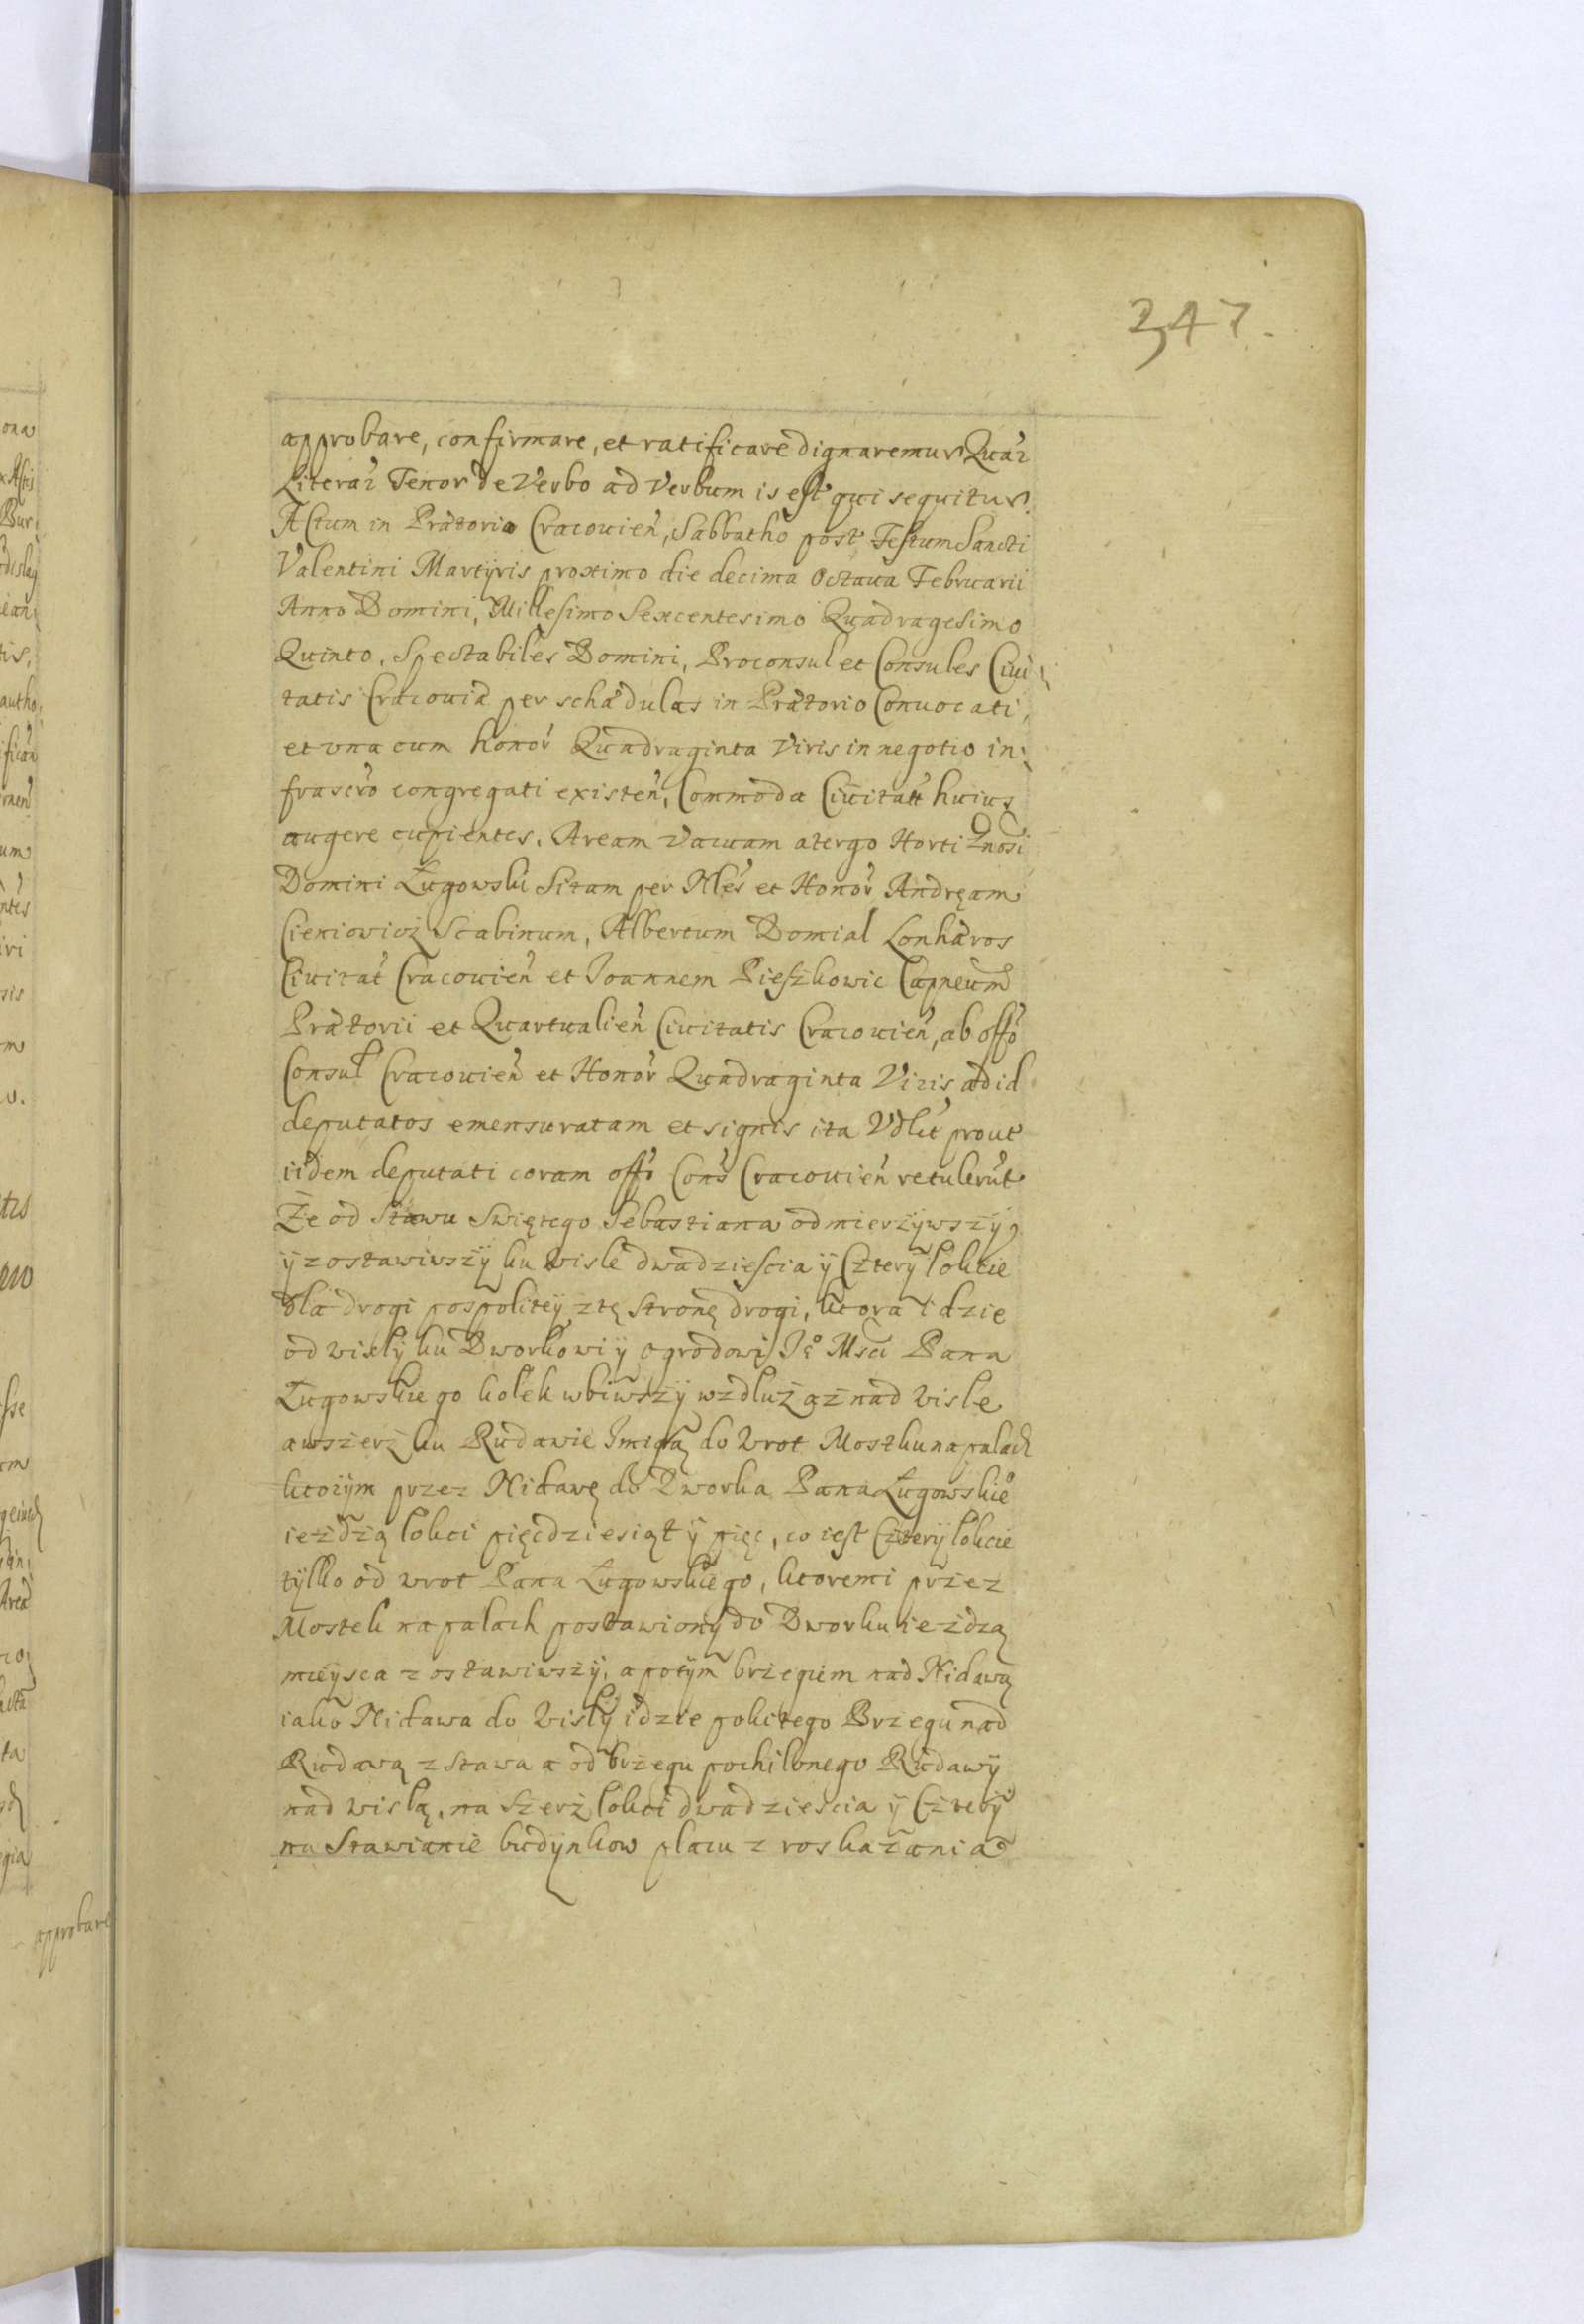 347.
approbare, confirmare, et ratificare dignaremur Quar
Literar Tenor de Verbo ad Verbum is est qui sequitur.
Actum in Prætorio Cracouien, Sabbatho post Festum Sancti
Valentini Martyris proximo die decima Octaua Februarii
Anno Domini, Millesimo Sexcentesimo Quadragesimo
Quinto, Spectabiles Domini, Proconsul et Consules Ciui
tatis Cracouiæ per schædulas in Prætorio Conuocati,
et vna cum honor Quadraginta Viris in negotio in
frascro congregati existen, Commoda Ciuitatt huius
augere cupientes, Aream vacuam a tergo Horti Gnosi
Domini Ługowski Sitam per Nles et Honor Andręam
Cieniowicz Scabinum, Albertum Domial Lonharos
Ciuitat Cracouien et Joannem Pieszkowic Capneum
Prætorii et Quartualien Ciuitatis Cracouien, ab offo
Consul Cracouien et Honor Quadraginta Viris ad id
deputatos emensuratam et signis ita Vdlit prout
iidem deputati coram offo Cons Cracouien retulerut
Że od Stawu Swiętego Sebastiana odmierzywszÿ,
ÿ zostawiwszÿ ku Wisle dwadziescia ÿ Czterÿ lokcie
dla drogi pospolitey z tę stronę drogi, ktora idzie
od wislÿ ku Dworkowi ÿ ogrodowi Je° Msci Pana
Ługowskiego kolek wbiwszÿ wzdluż aż nad Wisle
a wszerz ku Rudawie do Wrot Mostku na palach
ktorÿm przez Nidawę do Dworka Pana Ługowskie°
ieżdzą lokci pięcdziesiąt ÿ pięc, co iest Czterÿ lokcie
tÿlko od wrot Pana Ługowskiego, ktoremi przez
Mostek na palach postawionÿ do Dworku ieżdzą
mieysca zostawiwszÿ, a potÿm brzegiem nad Nidawą
iako Nidawa do Wislÿ idzie pokitego Brzegu nad
Rudawą z stawa a od brzegu pochilonego Rudawÿ
nad wislą, na szerz lokci dwadziescia ÿ Czterÿ
na Stawianie budÿnkow placu z roskazania
approbare